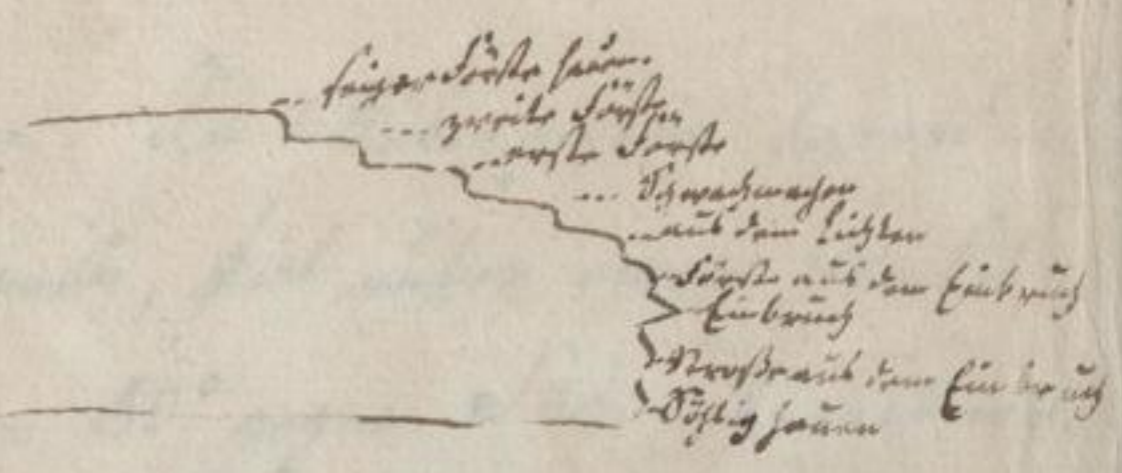 Förste hauen.
zweite Förste
erste Förste
Schwachmachen
aus dem Lichten
Förste aus dem Einbruch
Einbruch
Strosse aus dem Einbruch
Söhlig hauen